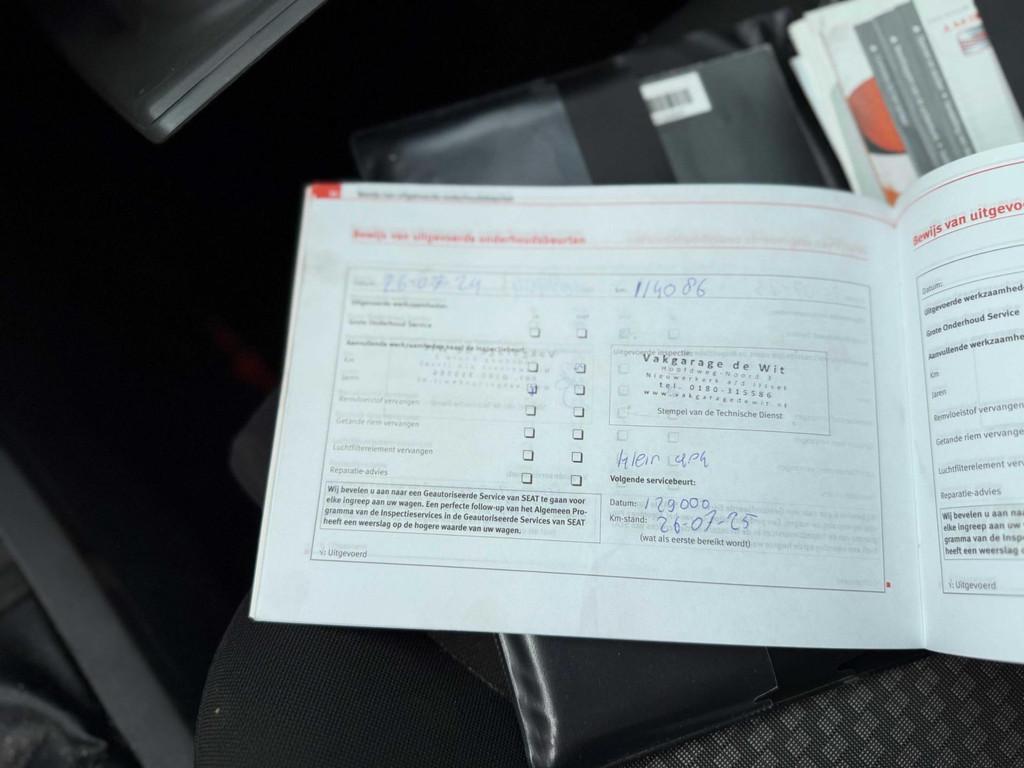 Bewijs van uitgevoerde onderhoudsbeurten
Bewijs van uitgevoerde onderhoudsbeurten
26-07-24
114086
Uitgevoerde werkzaamheden
Grote Onderhoud Service
Aanvullende werkzaamheden naast de Inspectiebeurt
Km
Jaren
Remvloeistof vervangen
Getande riem vervangen
Luchtfilterelement vervangen
Reparatie-advies
Uitgevoerde inspectie:
Vakgarage de Wit
Hoofdweg-Noord 3
Nieuwerkerk a/d IJssel
tel. 0180-315586
www.vakgaragedewit.nl
Stempel van de Technische Dienst
Klein
Volgende servicebeurt:
Datum: 129000
Km-stand: 26-07-25
(wat als eerste bereikt wordt)
Wij bevelen u aan naar een Geautoriseerde Service van SEAT te gaan voor
elke ingreep aan uw wagen. Een perfecte follow-up van het Algemeen Pro-
gramma van de Inspectieservices in de Geautoriseerde Services van SEAT
heeft een weerslag op de hogere waarde van uw wagen.
√: Uitgevoerd
Bewijs van uitgevo
Datum:
Uitgevoerde werkzaamhed
Grote Onderhoud Service
Aanvullende werkzaamhe
Km
Jaren
Remvloeistof vervangen
Getande riem vervange
Luchtfilterelement ver
Reparatie-advies
Wij bevelen u aan na
elke ingreep aan uw
gramma van de Insp
heeft een weerslag o
√: Uitgevoerd